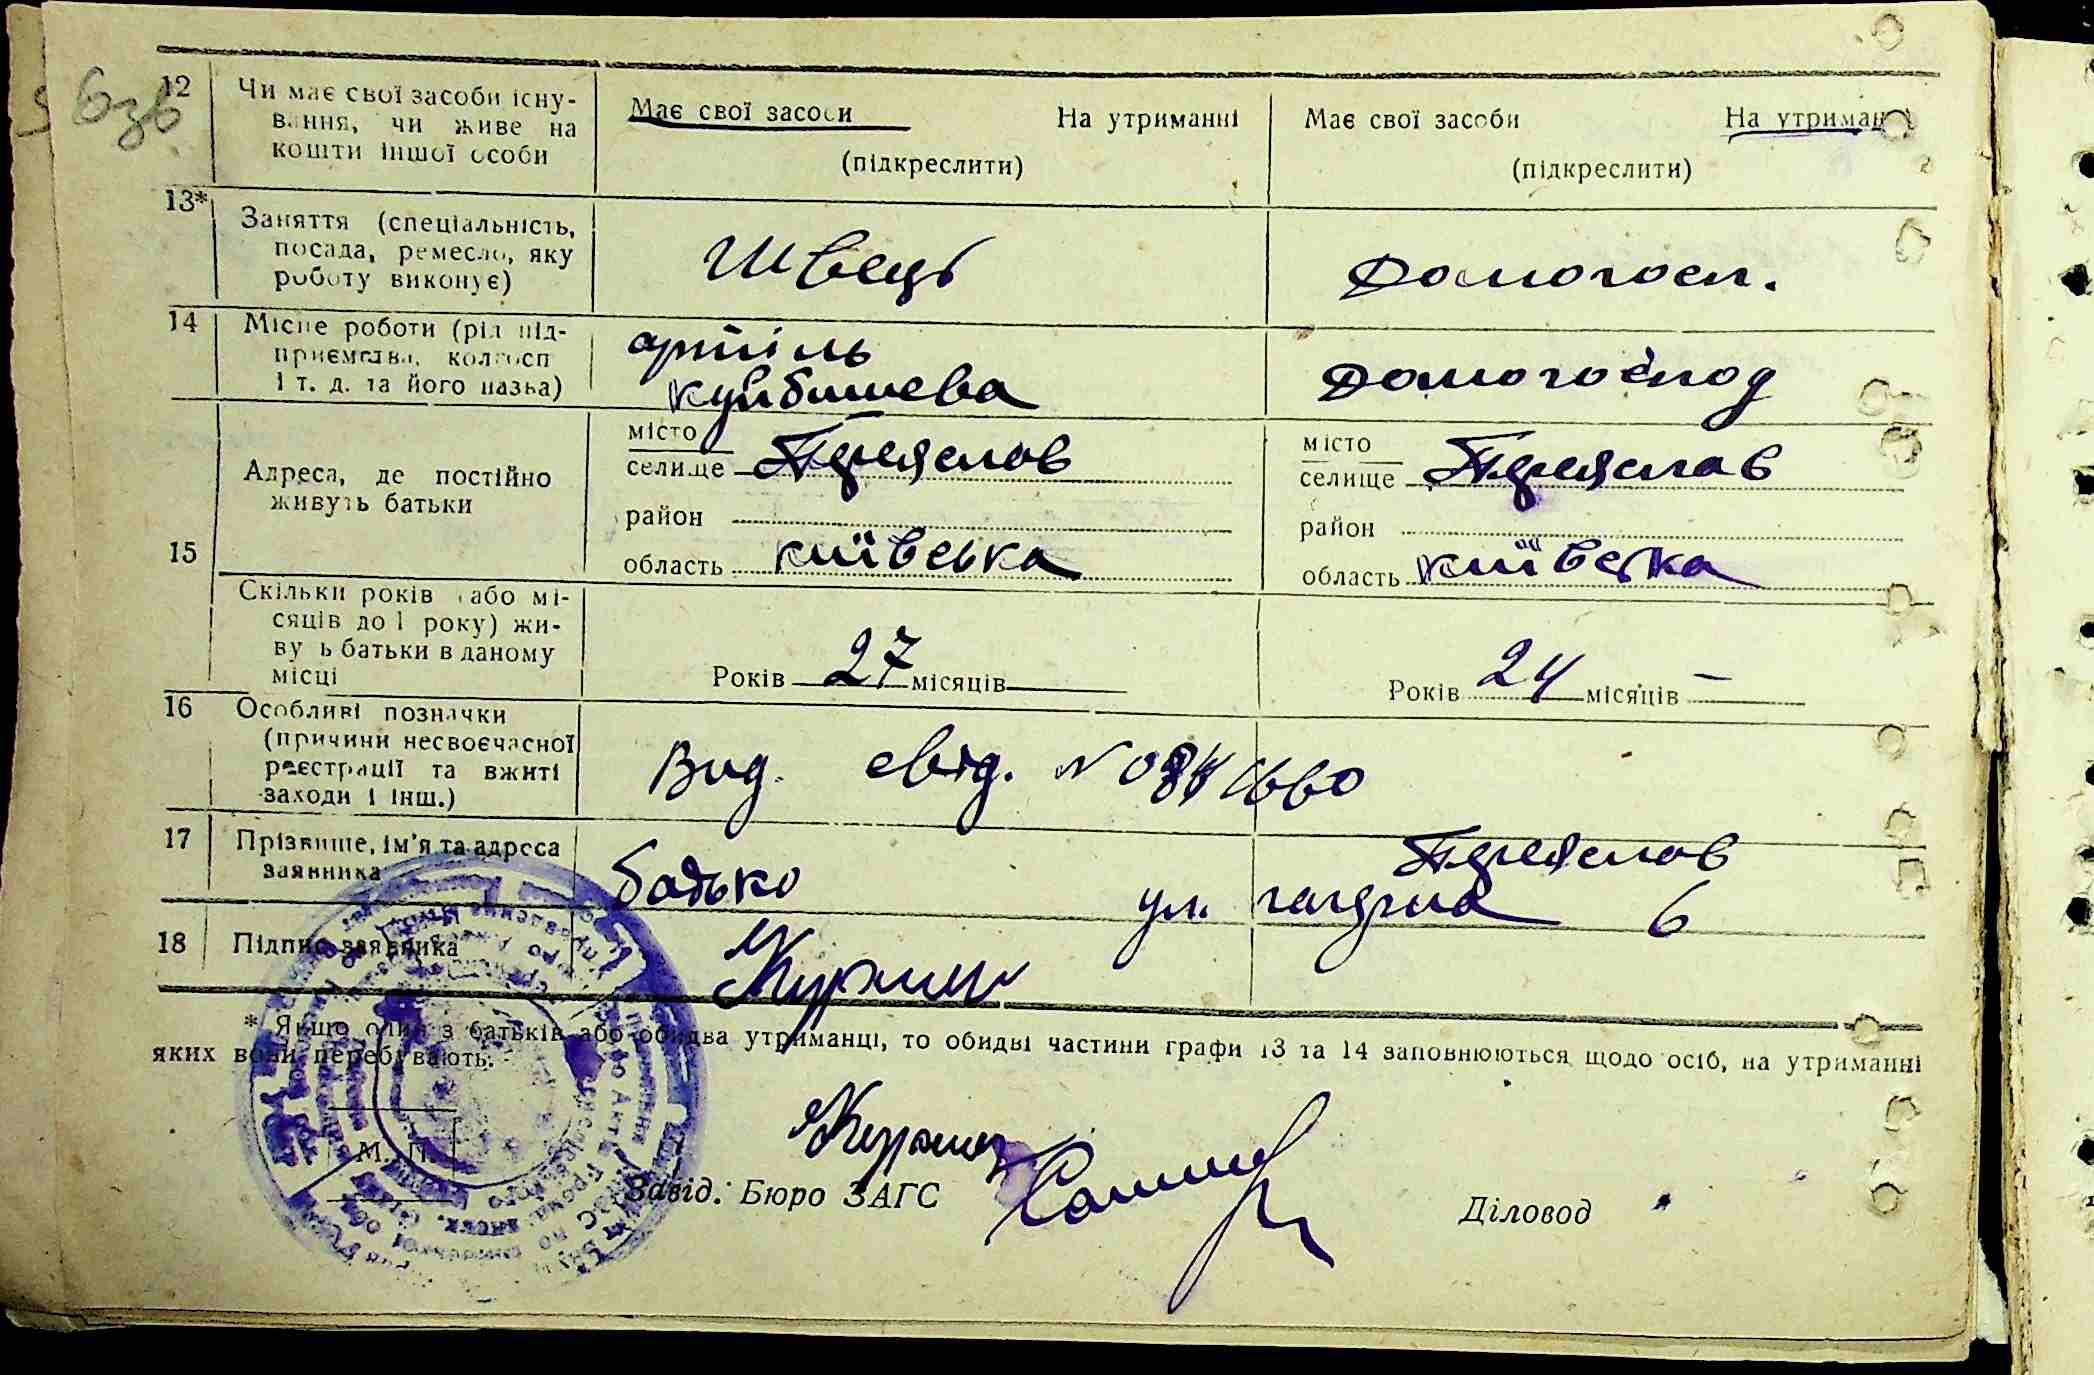 6зв
12 Чи має свої засоби існу-
вання, чи живе на
кошти іншої особи
Має свої засоби На утриманні
(підкреслити)
Має свої засоби На утриманні
(підкреслити)
13* Заняття (спеціальність,
посада, ремесло, яку
роботу виконує)
Швець
Домогосп.
14 Місце роботи (рід під-
приємства, колгосп
і т. д. та його назва)
артіль
Куйбишева
Домогоспод
15 Адреса, де постійно
живуть батьки
місто
селище Переяслав
район
область Київська
місто
селище Переяслав
район
область Київська
Скільки років (або мі-
сяців до 1 року) жи-
вуть батьки в даному
місці
Років 27 місяців
Років 24 місяців —
16 Особливі позначки
(причини несвоєчасної
реєстрації та вжиті
заходи і інш.)
Вид. свід. №
17 Прізвище, ім'я та адреса
заявника
батько
Переяслав
ул. 6
18 Підпис заявника
* Якщо один з батьків або обидва утриманці, то обидві частини графи 13 та 14 заповнюються щодо осіб, на утриманні
яких вони перебувають.
М. П.
Завід. Бюро ЗАГС
Діловод